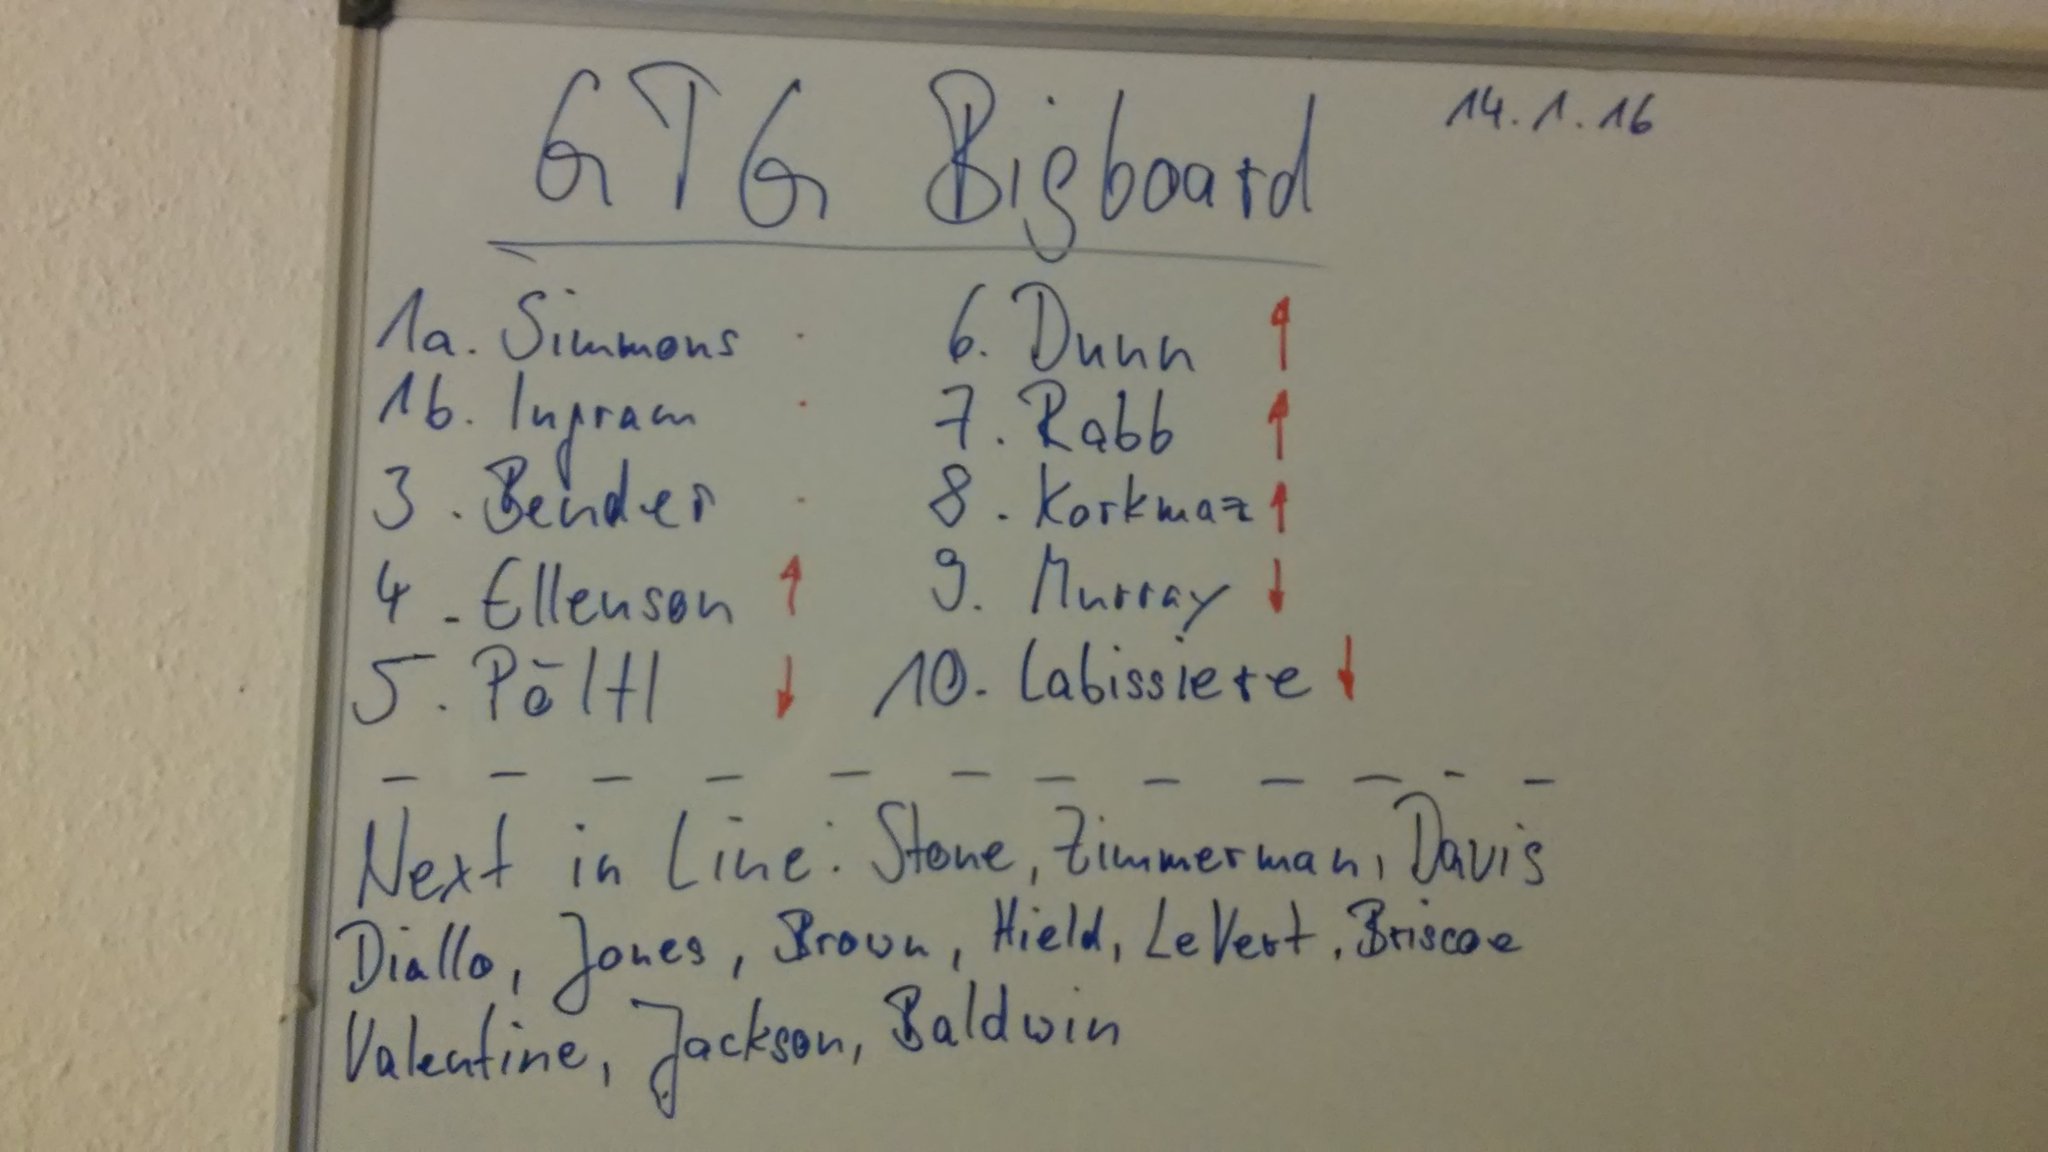 GTG Bigboard
14.1.16
1a. Simmons ·
1b. Ingram ·
3. Bender ·
4. Ellenson ↑
5. Pöltl ↓
6. Dunn ↑
7. Rabb ↑
8. Korkmaz ↑
9. Murray ↓
10. Labissiere ↓
Next in Line: Stone, Zimmerman, Davis
Diallo, Jones, Brown, Hield, LeVert, Briscoe
Valentine, Jackson, Baldwin